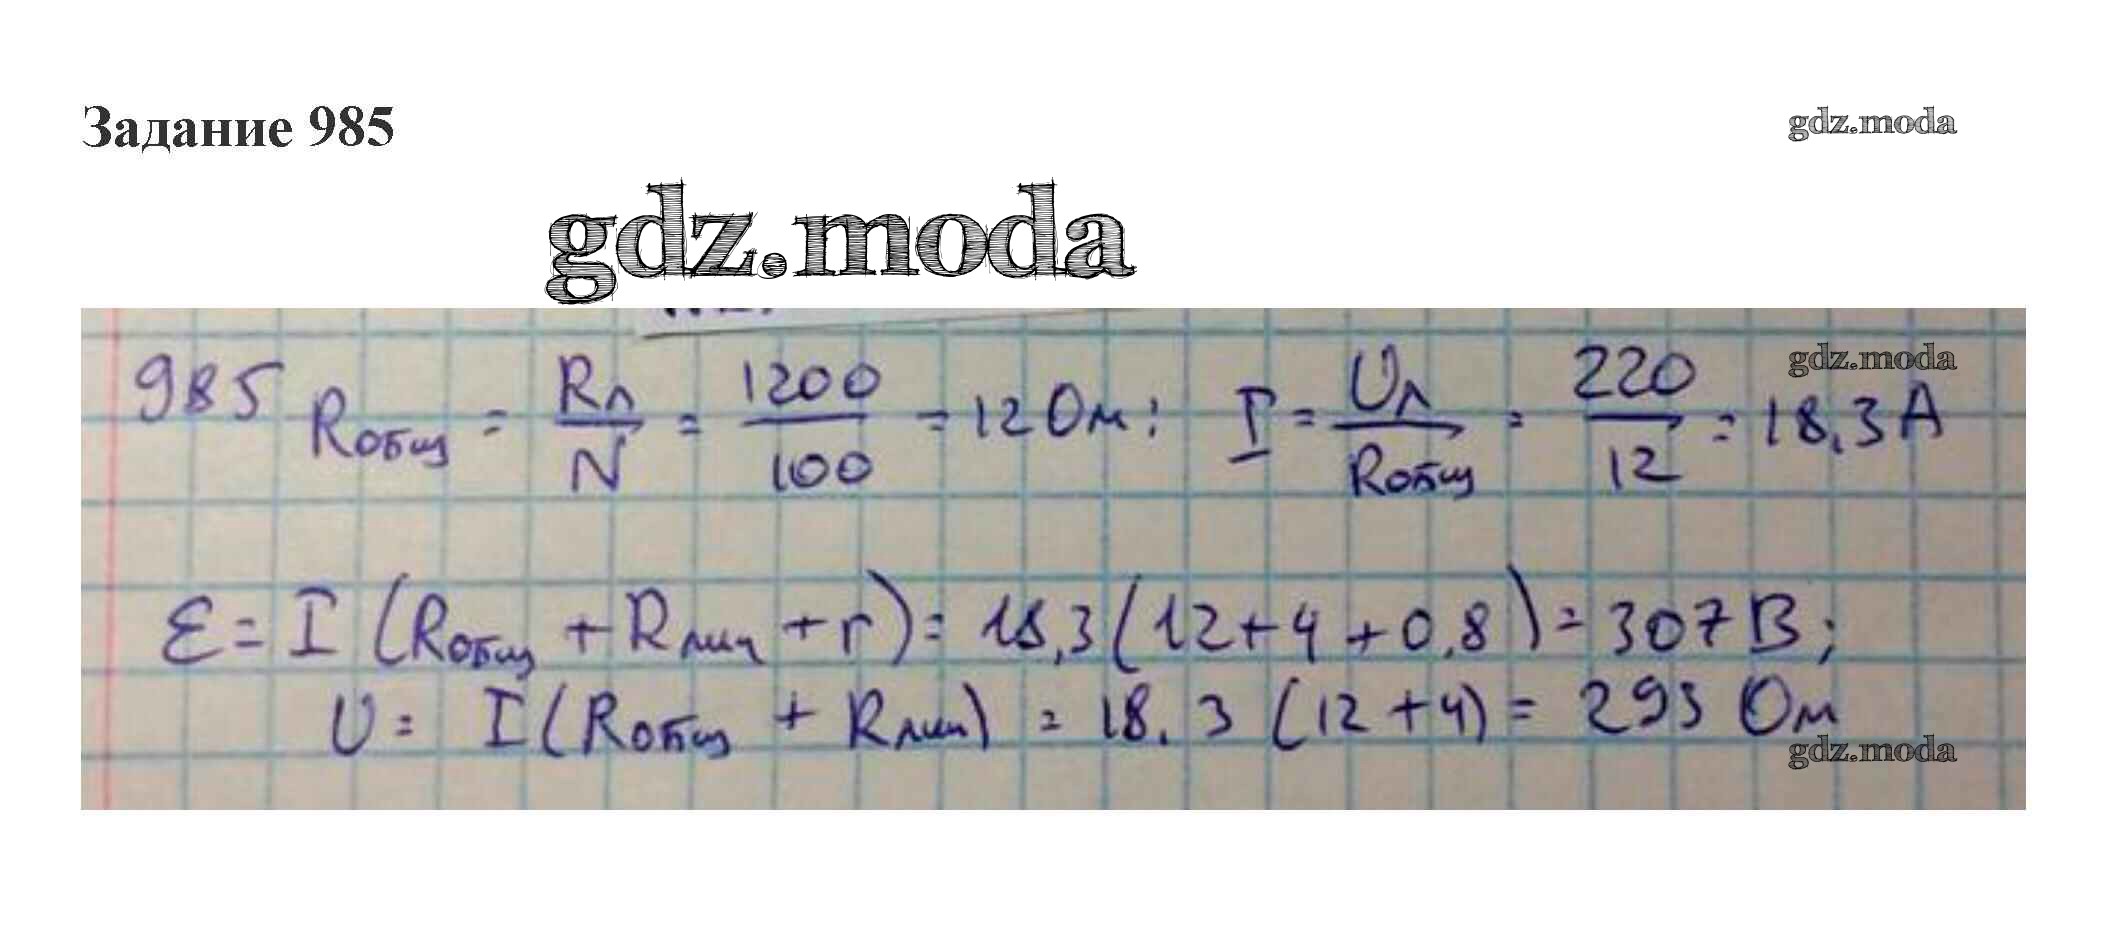 Задание 985
gdz.moda
gdz.moda
gdz.moda
985 Rобщ = Rл/N = 1200/100 = 12 Ом; I = Uл/Rобщ = 220/12 = 18,3 А
ε = I (Rобщ + Rлин + r) = 18,3 (12 + 4 + 0,8) = 307 В;
U = I (Rобщ + Rлин) = 18.3 (12 + 4) = 293 Ом
gdz.moda